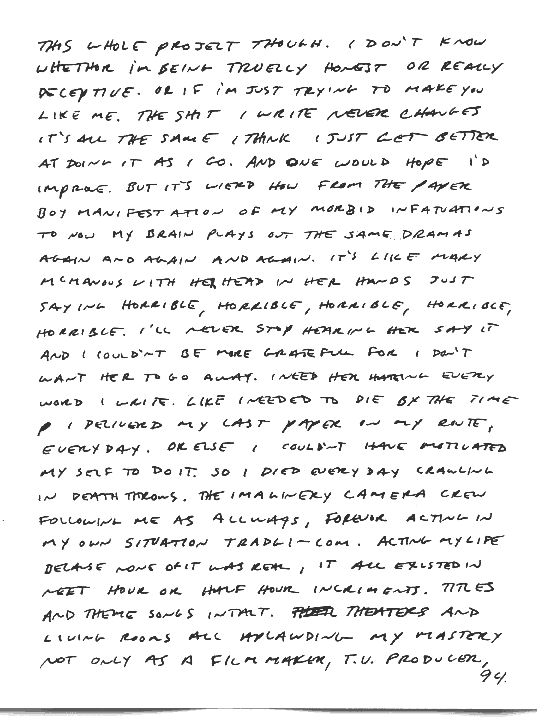 THIS WHOLE PROJECT THOUGH. I DON'T KNOW
WHETHOR I'M BEING TRUELLY HONEST OR REALLY
DECEPTIVE. OR IF I'M JUST TRYING TO MAKE YOU
LIKE ME. THE SHIT I WRITE NEVER CHANGES
IT'S ALL THE SAME I THINK I JUST GET BETTER
AT DOING IT AS I GO. AND ONE WOULD HOPE I'D
IMPROVE. BUT IT'S WIERD HOW FROM THE PAPER
BOY MANIFESTATION OF MY MORBID INFATUATIONS
TO NOW MY BRAIN PLAYS OUT THE SAME DRAMAS
AGAIN AND AGAIN AND AGAIN. IT'S LIKE MARY
MCMANOUS WITH HER HEAD IN HER HANDS JUST
SAYING HORRIBLE, HORRIBLE, HORRIBLE, HORRIBLE,
HORRIBLE. I'LL NEVER STOP HEARING HER SAY IT
AND I COULD'NT BE MORE GRATEFULL FOR I DON'T
WANT HER TO GO AWAY. I NEED HER HATEING EVERY
WORD I WRITE. LIKE I NEEDED TO DIE BY THE TIME
I DELIVERD MY LAST PAPER ON MY ROUTE,
EVERYDAY. OR ELSE I COULDN'T HAVE MOTIVATED
MY SELF TO DO IT. SO I DIED EVERYDAY CRAWLING
IN DEATH THROWS. THE IMAGINERY CAMERA CREW
FOLLOWING ME AS ALLWAYS, FOREVOR ACTING IN
MY OWN SITUATION TRADGI-COM. ACTING MY LIFE
BECAUSE NONE OF IT WAS REAL, IT ALL EXISTED IN
NEET HOUR OR HALF HOUR INCRIMENTS. TITLES
AND THEME SONGS INTACT. THEATERS AND
LIVING ROOMS ALL APLAWDING MY MASTERY
NOT ONLY AS A FILM MAKER, T.V. PRODUCER,
94.